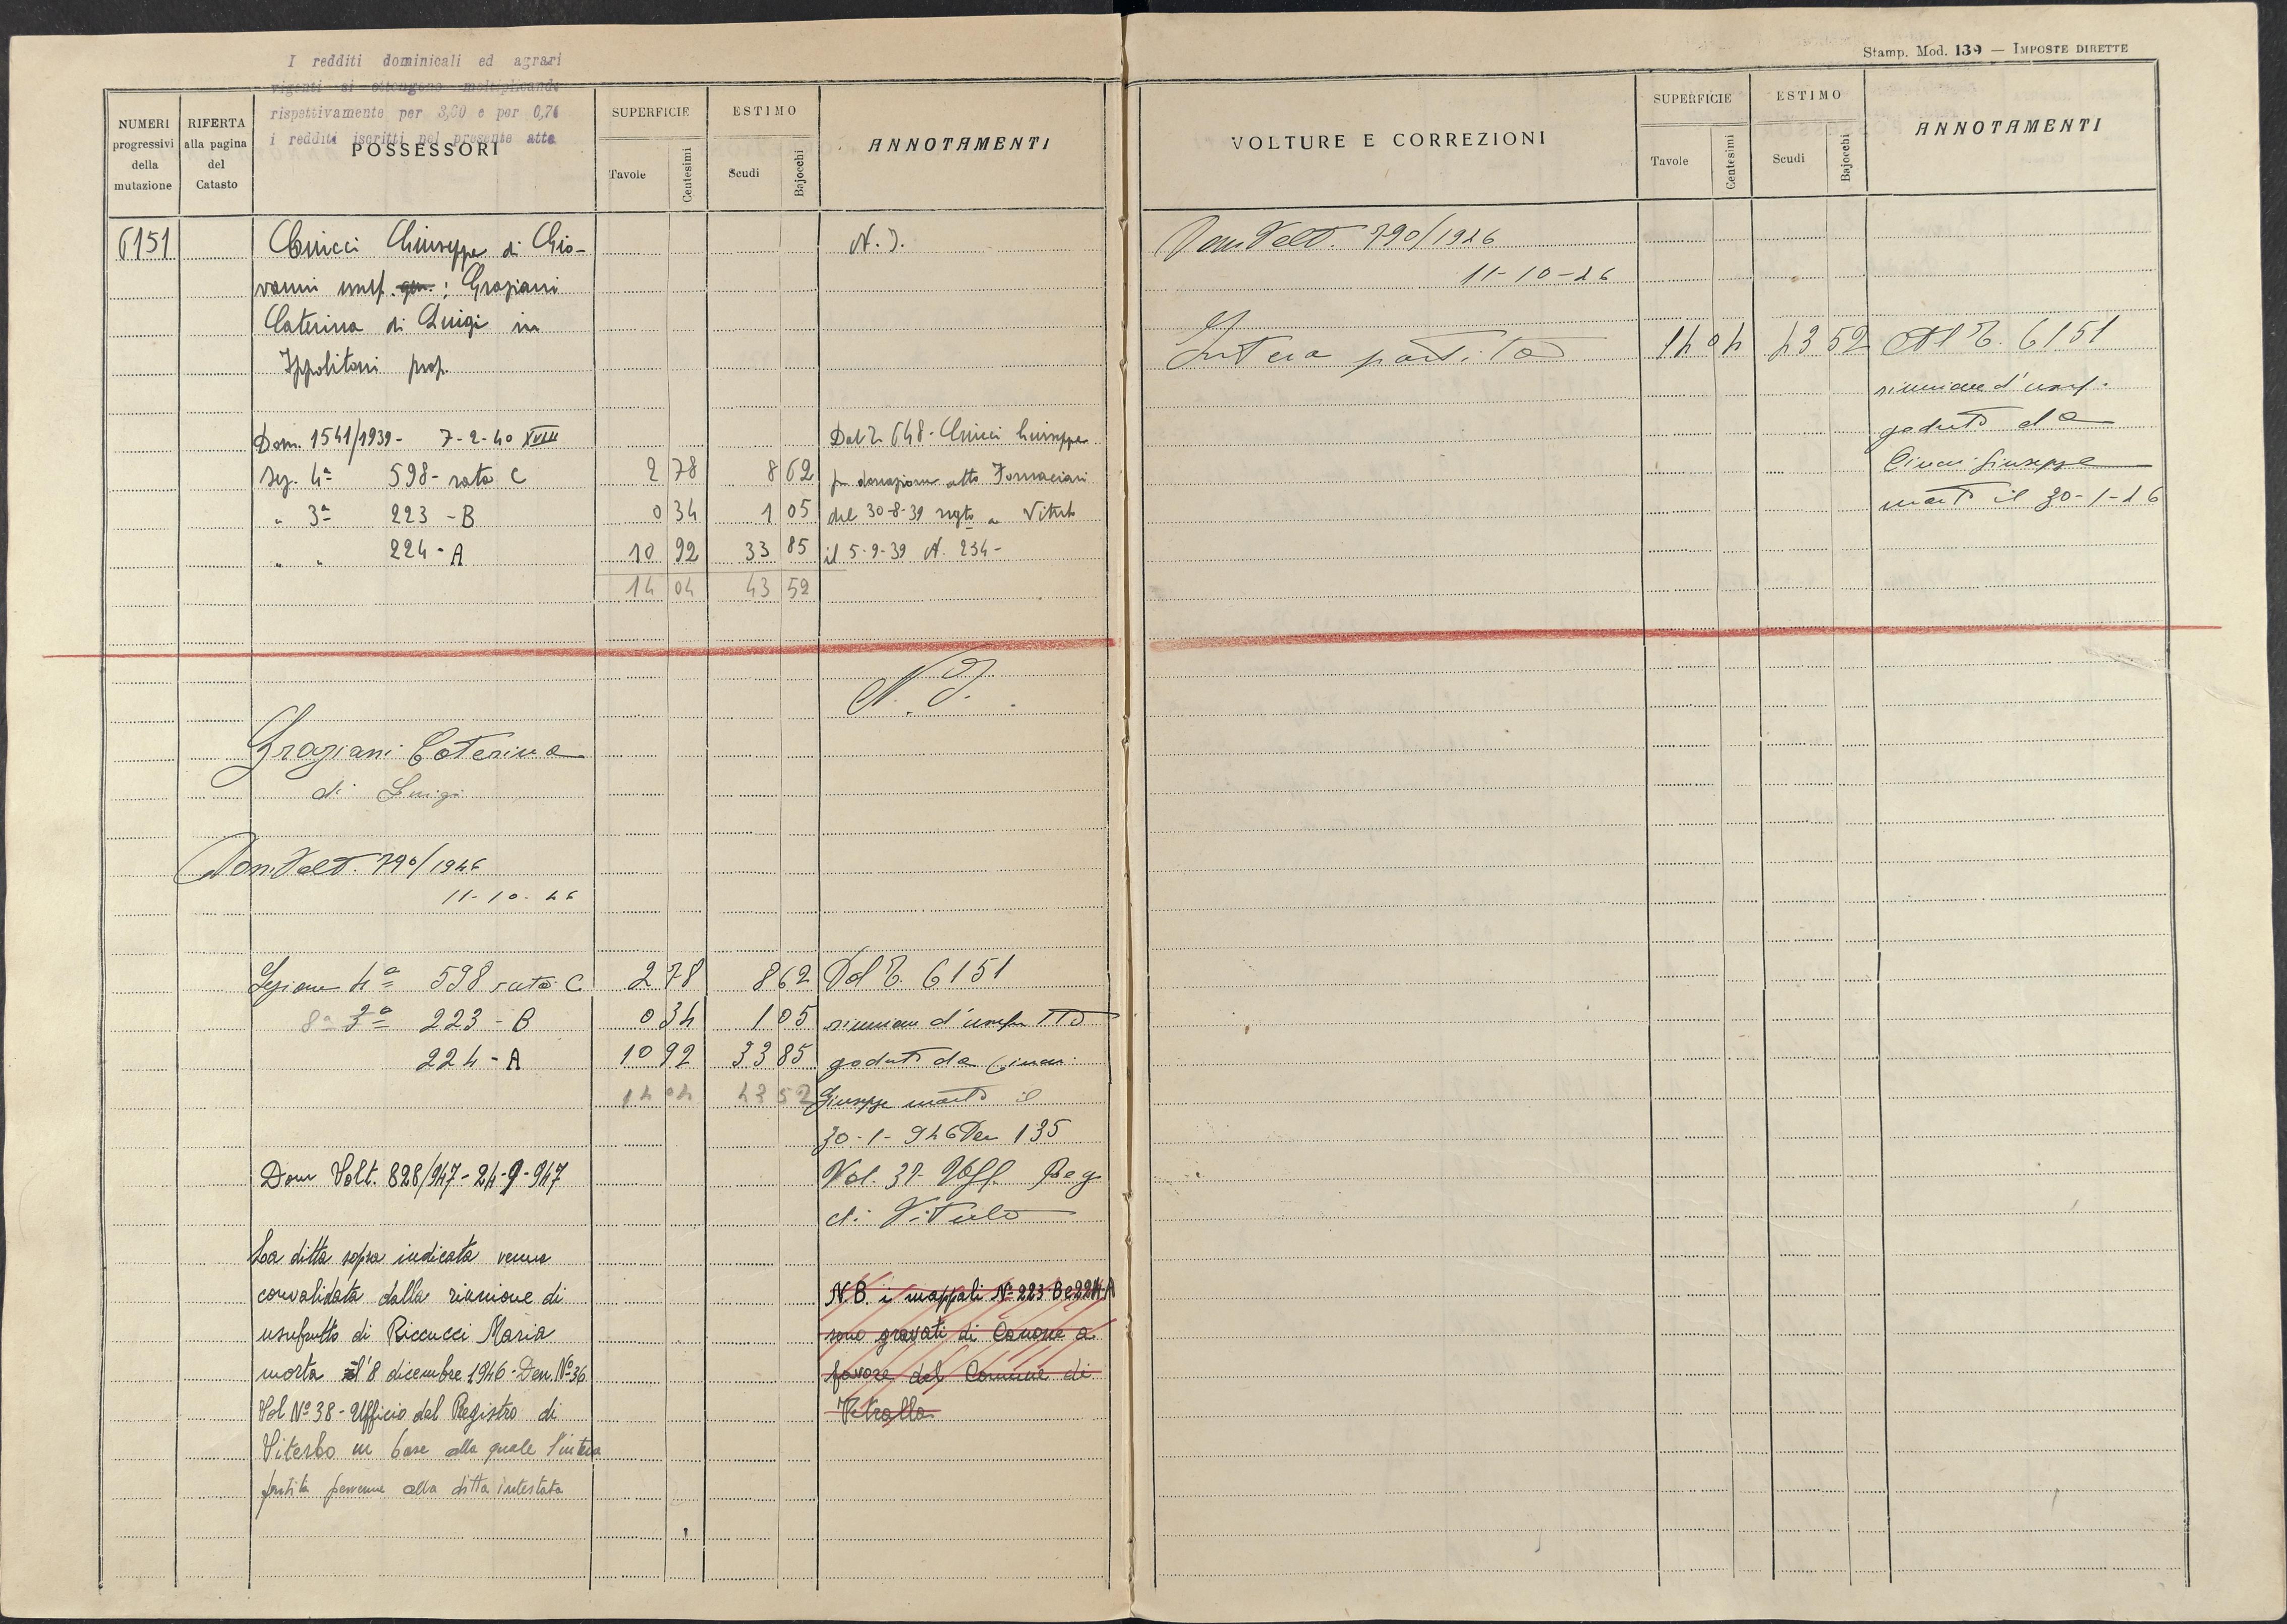 I redditi dominicali ed agrari
vigenti si ottengono moltiplicando
rispettivamente per 3,60 e per 0,74
i redditi iscritti nel presente atto
Stamp. Mod. 139 — IMPOSTE DIRETTE
NUMERI progressivi della mutazione
RIFERTA alla pagina del Catasto
POSSESSORI
SUPERFICIE
Tavole Centesimi
ESTIMO
Scudi Bajocchi
ANNOTAMENTI
6151 Ciucci Giuseppe di Gio- N. I.
vanni usuf. gen. : Graziani
Caterina di Luigi in
Ippolitoni prop.
Dom. 1541/1939 - 7-2-40 XVIII Dal 2 648 - Ciucci Giuseppe
Sez. 4ª 598 - rata C 2 78 8 62 per donazione atto Fornaciari
" 3ª 223 - B 0 34 1 05 del 30-8-39 regto a Viterbo
" " 224 - A 10 92 33 85 il 5-9-39 N. 234 -
14 04 43 52
N. I.
Graziani Caterina
di Luigi
Dom. Volt. 790/1946
11-10-46
Sezione 4ª 598 rata C 2 78 8 62 Dal 6151
8ª 3ª 223 - B 0 34 1 05 riunione d'usufrutto
224 - A 10 92 33 85 goduto da Ciucci
14 04 43 52 Giuseppe morto il
30-1-946 Den 135
Dom Volt. 828/947 - 24-9-947 Vol. 37 Uff. Reg
di Viterbo
La ditta sopra indicata venne
convalidata dalla riunione di N.B. i mappali Nº 223 B e 224 A
usufrutto di Riccucci Maria sono gravati di Canone a
morta l'8 dicembre 1946 - Den. Nº 36 favore del Comune di
Vol Nº 38 - Ufficio del Registro di Vetralla
Viterbo in base alla quale l'intera
partita pervenne alla ditta intestata
VOLTURE E CORREZIONI
SUPERFICIE
Tavole Centesimi
ESTIMO
Scudi Bajocchi
ANNOTAMENTI
Dom. Volt. 790/1946
11-10-46
Intera partita 14 04 43 52 Al 6151
riunione d'usuf.
goduto da
Ciucci Giuseppe
morto il 30-1-46